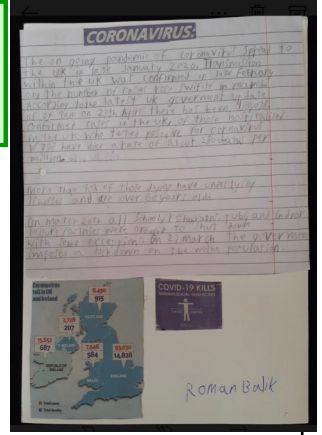 CORONAVIRUS:
The on going pandemic of coronavirus spread to
the UK in late January 2020. Transmission
within the UK was confirmed in late February
and the number of cases rose swiftly in march
According to the latest UK goverment update
as of 9am on 27th April there has been
confirmed cases in the UK. of those hospitalised
in the UK who tested posotive for coronavirus
have died a rate of about per
million
More than of those dying have underlying
illnesses and are over 60 years olds
On march 20th all Schools, pubs and indoor
leisure were to shut down
with some exceptions. On 23 march The goverment
imposed a lockdown on the whole population
Coronavirus
toll in UK
and Ireland
8,450
915
SCOTLAND
2,728
207
15,652
687
REPUBLIC OF
IRELAND
7,546
584
WALES
14,828
ENGLAND
Total cases
Total deaths
COVID-19 KILLS
Roman Balik